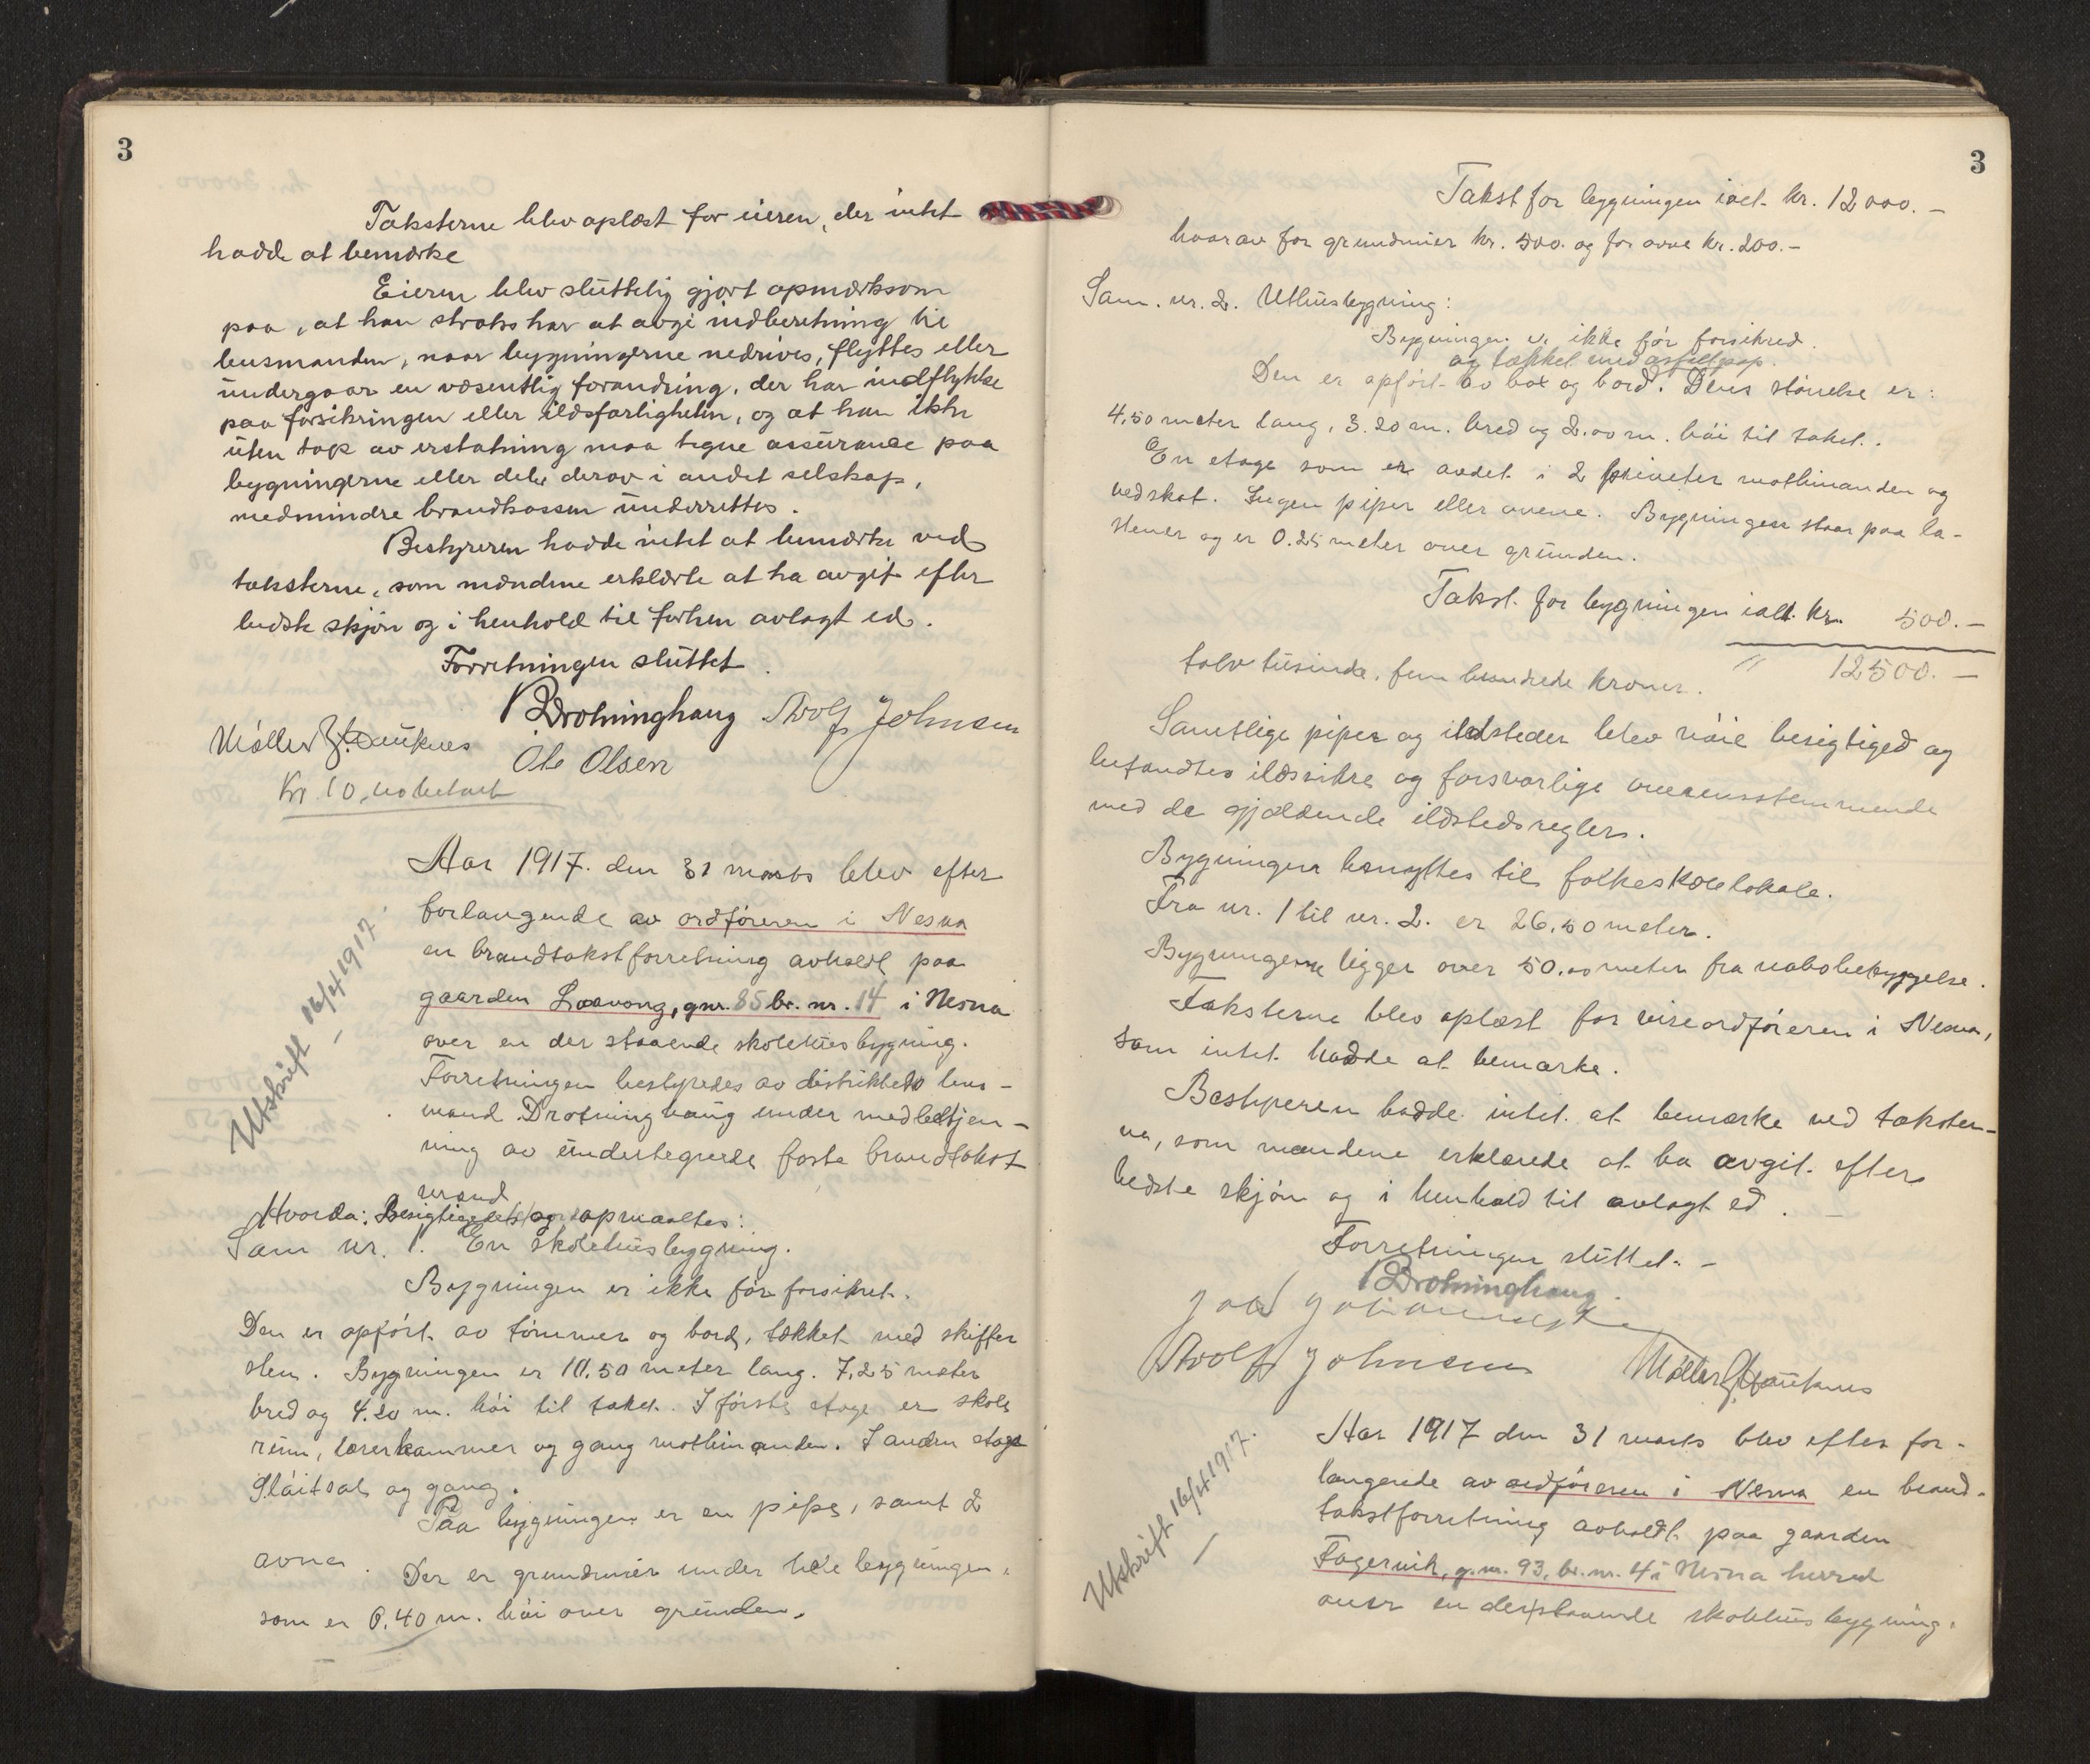 3
Taksterne blev oplæst for eieren, der intet
hadde at bemærke
Eieren blev sluttelig gjort opmerksom
paa, at han straks har at avgi indberetning til
lensmanden, naar bygningerne nedrives, flyttes eller
undergaar en væsentlig forandring, der har indflytelse
paa forsikringen eller ildsfarligheten, og at han ikke
uten tap av erstatning maa tegne assurance paa
bygningerne eller dele derav i andet selskap,
medmindre brandkassen underrettes.
Bestyreren hadde intet at bemærke ved
taksterne, som mændene erklærte at ha avgit efter
bedste skjøn og i henhold til forhen avlagt ed.
Forretningen sluttet.
Drotninghaug Adolf Johnsen
Møller Zt. Dauknes
Ole Olsen
Kr 10,00 betalt
Aar 1917. den 31 marts blev efter
forlangende av ordføreren i Nesna
en brandtakstforretning avholdt paa
gaarden Laavong, gnr. 85 br. nr. 14 i Nesna
over en der staaende skolehusbygning.
Forretningen bestyredes av distriktets lens-
mand Drotninghaug under medbetjen-
ning av undertegnede faste brandtakst
mænd
Utskrift 16/4 1917.
Hvorda: Besigtigedes og opmaaltes:
Sam nr. 1. En skolehusbygning.
Bygningen er ikke før forsikret.
Den er opført av tømmer og bord, tækket med skiffer
sten. Bygningen er 10.50 meter lang. 7,25 meter
bred og 4.20 m. høi til taket. I første etage er skole
rum, lærerkammer og gang mothinanden. I anden etage
Sløitsal og gang.
Paa bygningen er en pipe, samt 2
ovner. Der er grundmur under hele bygningen,
som er 0,40 m. høi over grunden.
3
Takst for bygningen ialt kr. 12000.-
hvorav for grundmur kr. 500. og for ovne kr. 200.-
Sam. nr. 2. Uthusbygning:
Bygningen er ikke før forsikred.
og tækket med asfaltpap.
Den er opført av box og bord. Dens størrelse er:
4,50 meter lang, 3.20 m. bred og 2.00 m. høi til taket.
En etage som er avdelt i 2 priveter mothinanden og
vedskot. Ingen piper eller ovne. Bygningen staar paa la-
stener og er 0.25 meter over grunden.
Takst for bygningen ialt kr. 500.-
tolv tusinde, fem hundrede kroner. " 12500.-
Samtlige piper og ildsteder blev nøie besigtiged og
befandtes ildsikre og forsvarlige overensstemmende
med de gjældende ildstedsregler.
Bygningen benyttes til folkeskolelokale.
Fra nr. 1 til nr. 2. er 26,50 meter.
Bygningerne ligger over 50.00 meter fra nabobebyggelse.
Taksterne blev oplæst for viseordføreren i Nesna,
som intet hadde at bemærke.
Bestyreren hadde intet at bemærke ved takster-
ne, som mændene erklærede at ha avgit efter
bedste skjøn og i henhold til avlagt ed.
Forretningen sluttet.-
Drotninghaug.
Adolf Johnsen Møller Zt. Dauknes
Aar 1917 den 31 marts blev efter for-
langende av ordføreren i Nesna en brand-
takstforretning avholdt paa gaarden
Fagervik, g.nr. 93, br.nr. 4 i Nesna herred
over en der staaende skolehusbygning.
Utskrift 16/4 1917.